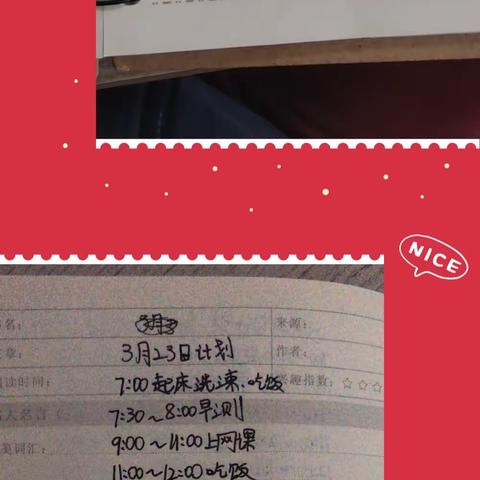 NICE
名:
来源:
章:
3月23日计划
作者:
阅读时间:
7:00起床洗漱、吃饭
趣指数: ☆☆☆
人名言
7:30~8:00早测
9:00~11:00上网课
美词汇:
11:00~12:00吃饭